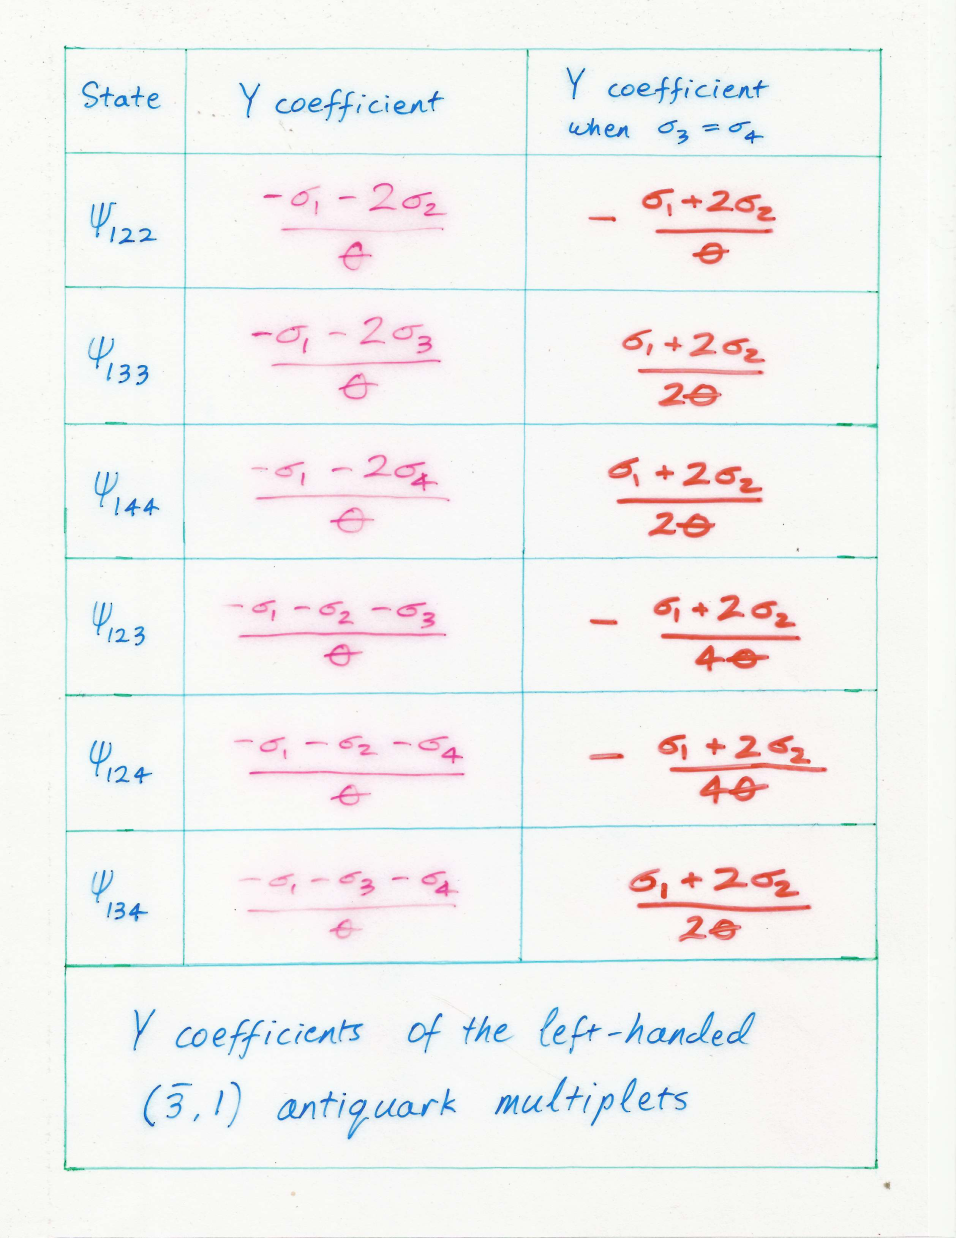 State Y coefficient Y coefficient
when σ₃ = σ₄
ψ₁₂₂ (-σ₁ - 2σ₂)/θ - (σ₁ + 2σ₂)/θ
ψ₁₃₃ (-σ₁ - 2σ₃)/θ (σ₁ + 2σ₂)/2θ
ψ₁₄₄ (-σ₁ - 2σ₄)/θ (σ₁ + 2σ₂)/2θ
ψ₁₂₃ (-σ₁ - σ₂ - σ₃)/θ - (σ₁ + 2σ₂)/4θ
ψ₁₂₄ (-σ₁ - σ₂ - σ₄)/θ - (σ₁ + 2σ₂)/4θ
ψ₁₃₄ (-σ₁ - σ₃ - σ₄)/θ (σ₁ + 2σ₂)/2θ
Y coefficients of the left-handed
(3̄, 1) antiquark multiplets